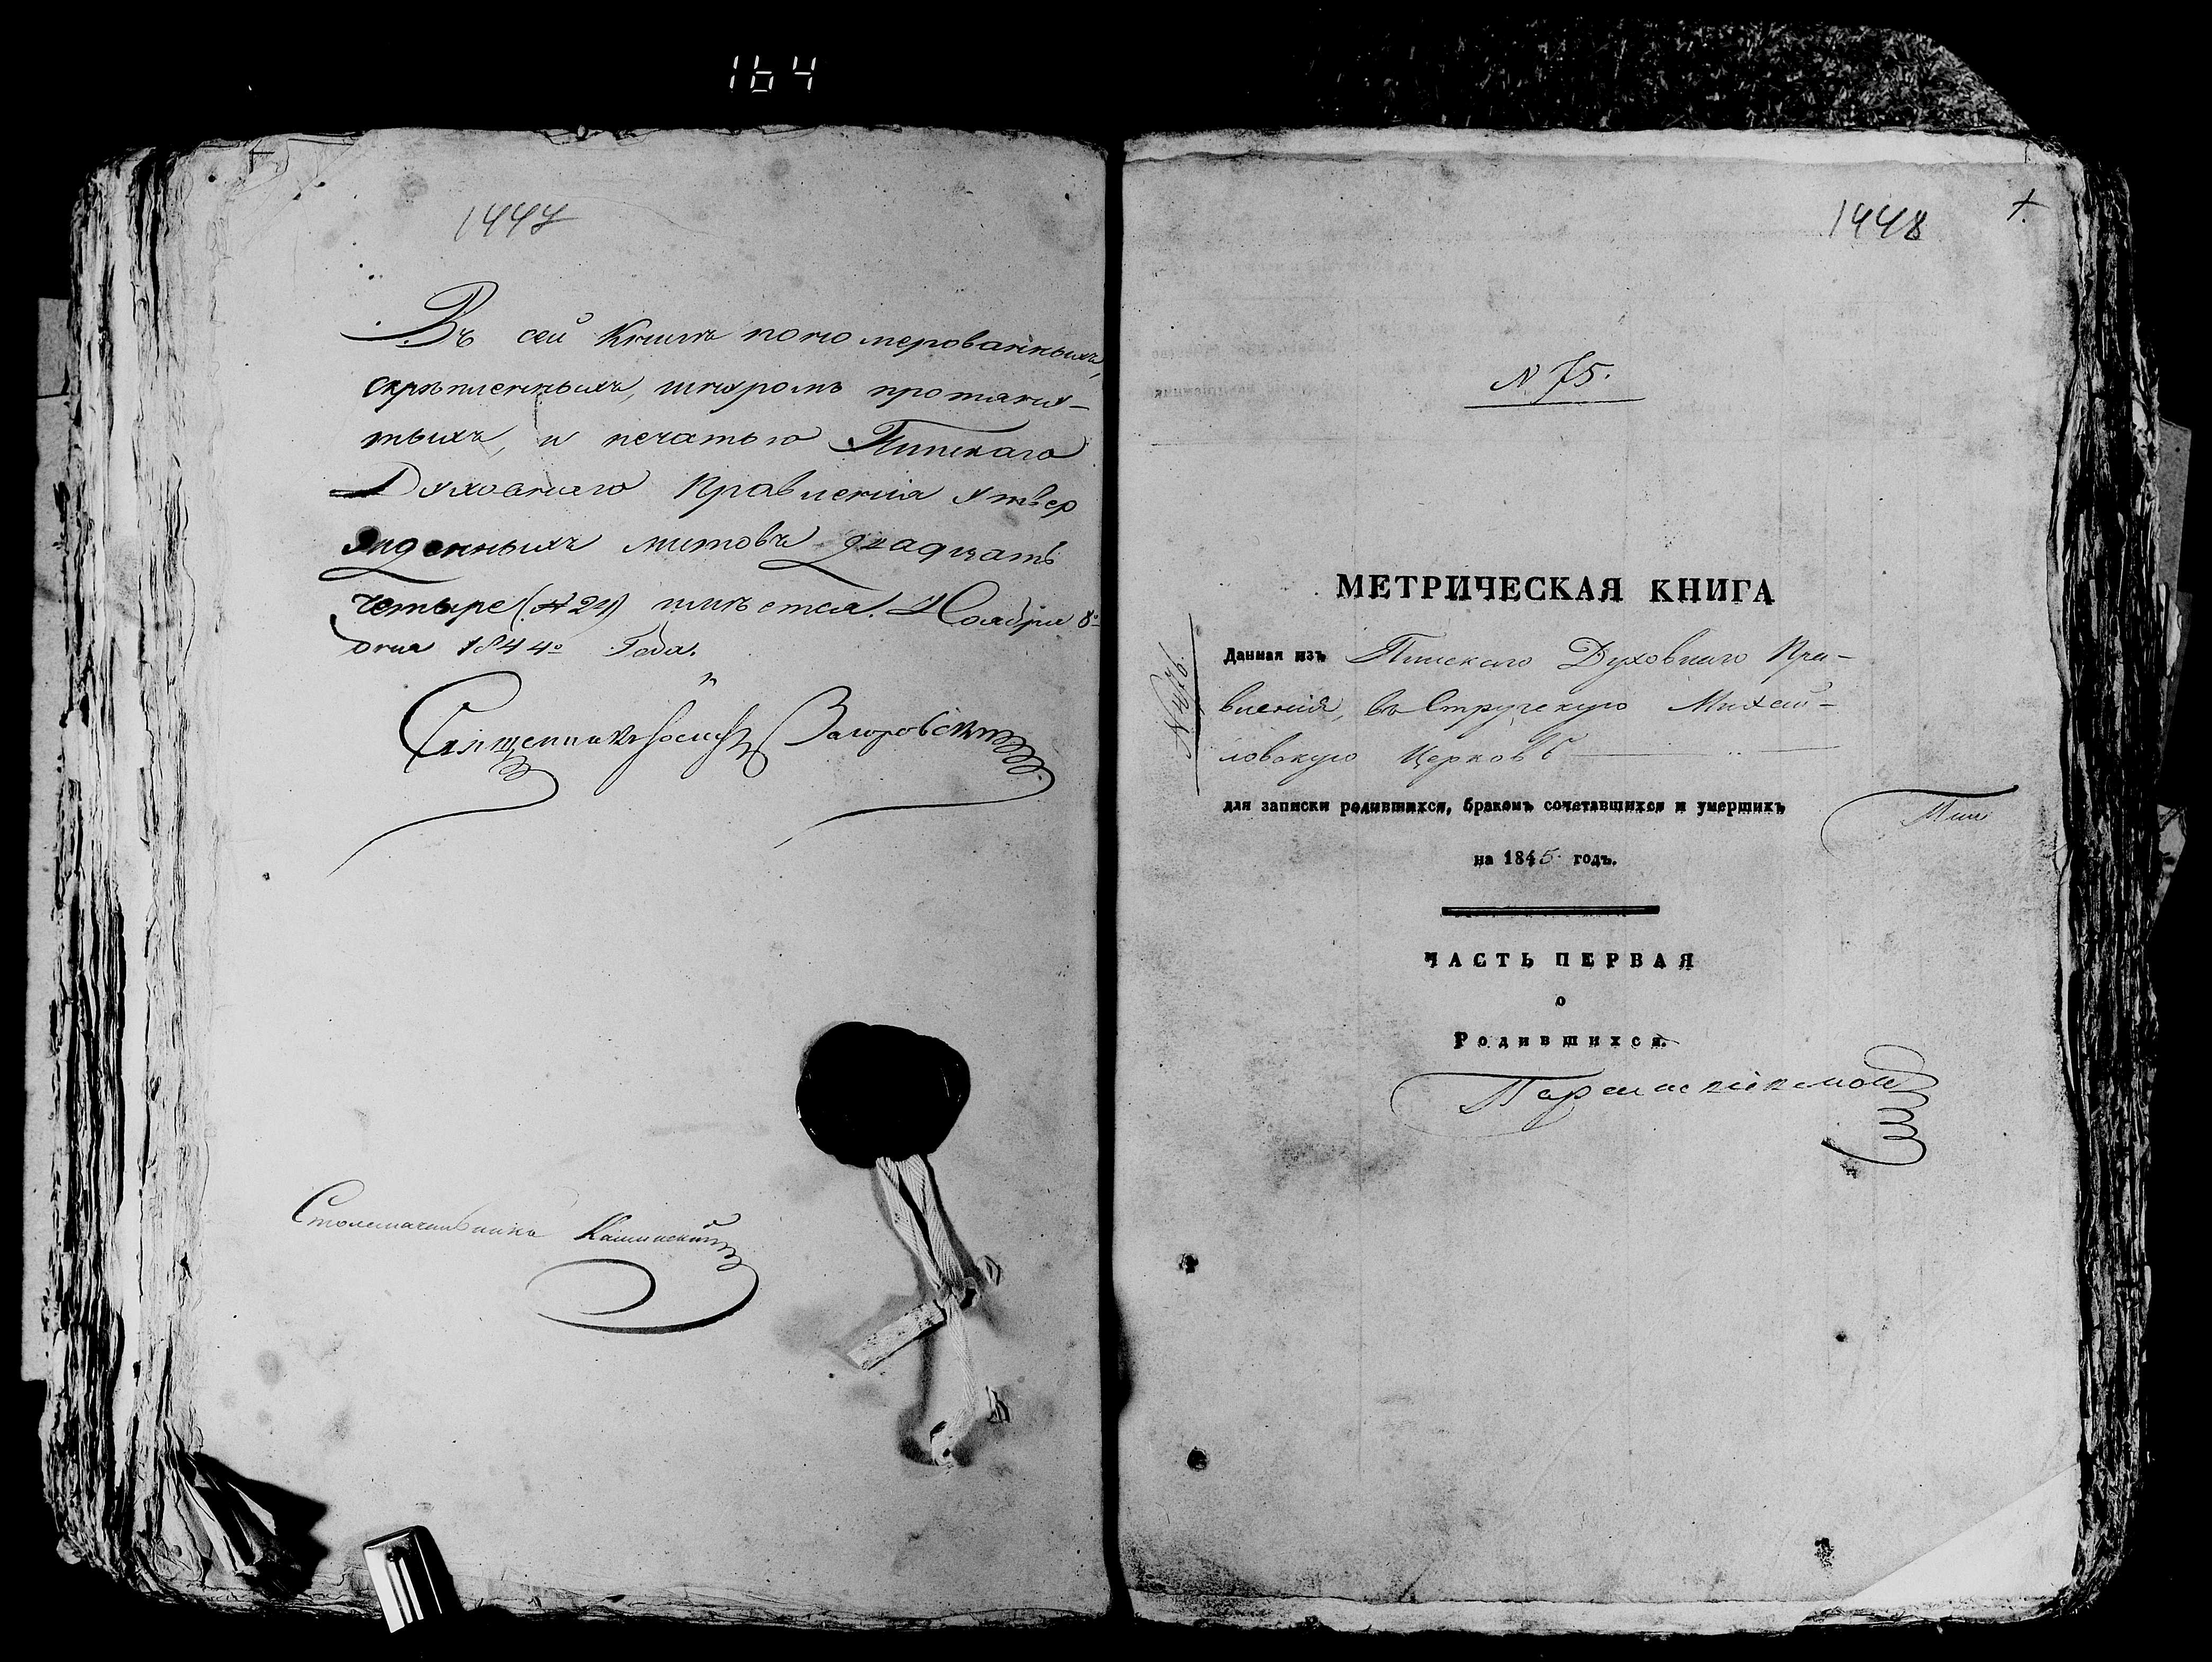 164
1447
Въ сей Книгѣ пономерованныхъ,
скрѣпленныхъ, шнуромъ протяну-
тыхъ, и печатью Пинскаго
Духовнаго Правленія утвер
жденныхъ листовъ двадцать
четыре (№ 24) имѣется. Ноября 8º
дня 1844º Года.
Священникъ Іосифъ Загоровскій
Столоначальникъ Калинскій
1448
№ 75.
МЕТРИЧЕСКАЯ КНИГА
Данная изъ Пинскаго Духовнаго Пра-
вленія, въ Стружскую Михай-
ловскую Церковь
для записки родившихся, бракомъ сочетавшихся и умершихъ
на 1845 годъ.
ЧАСТЬ ПЕРВАЯ
о
Родившихся.